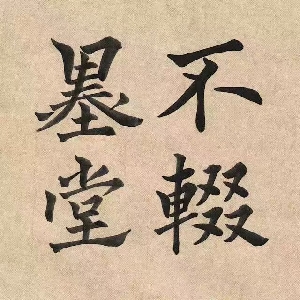 不輟
墨堂